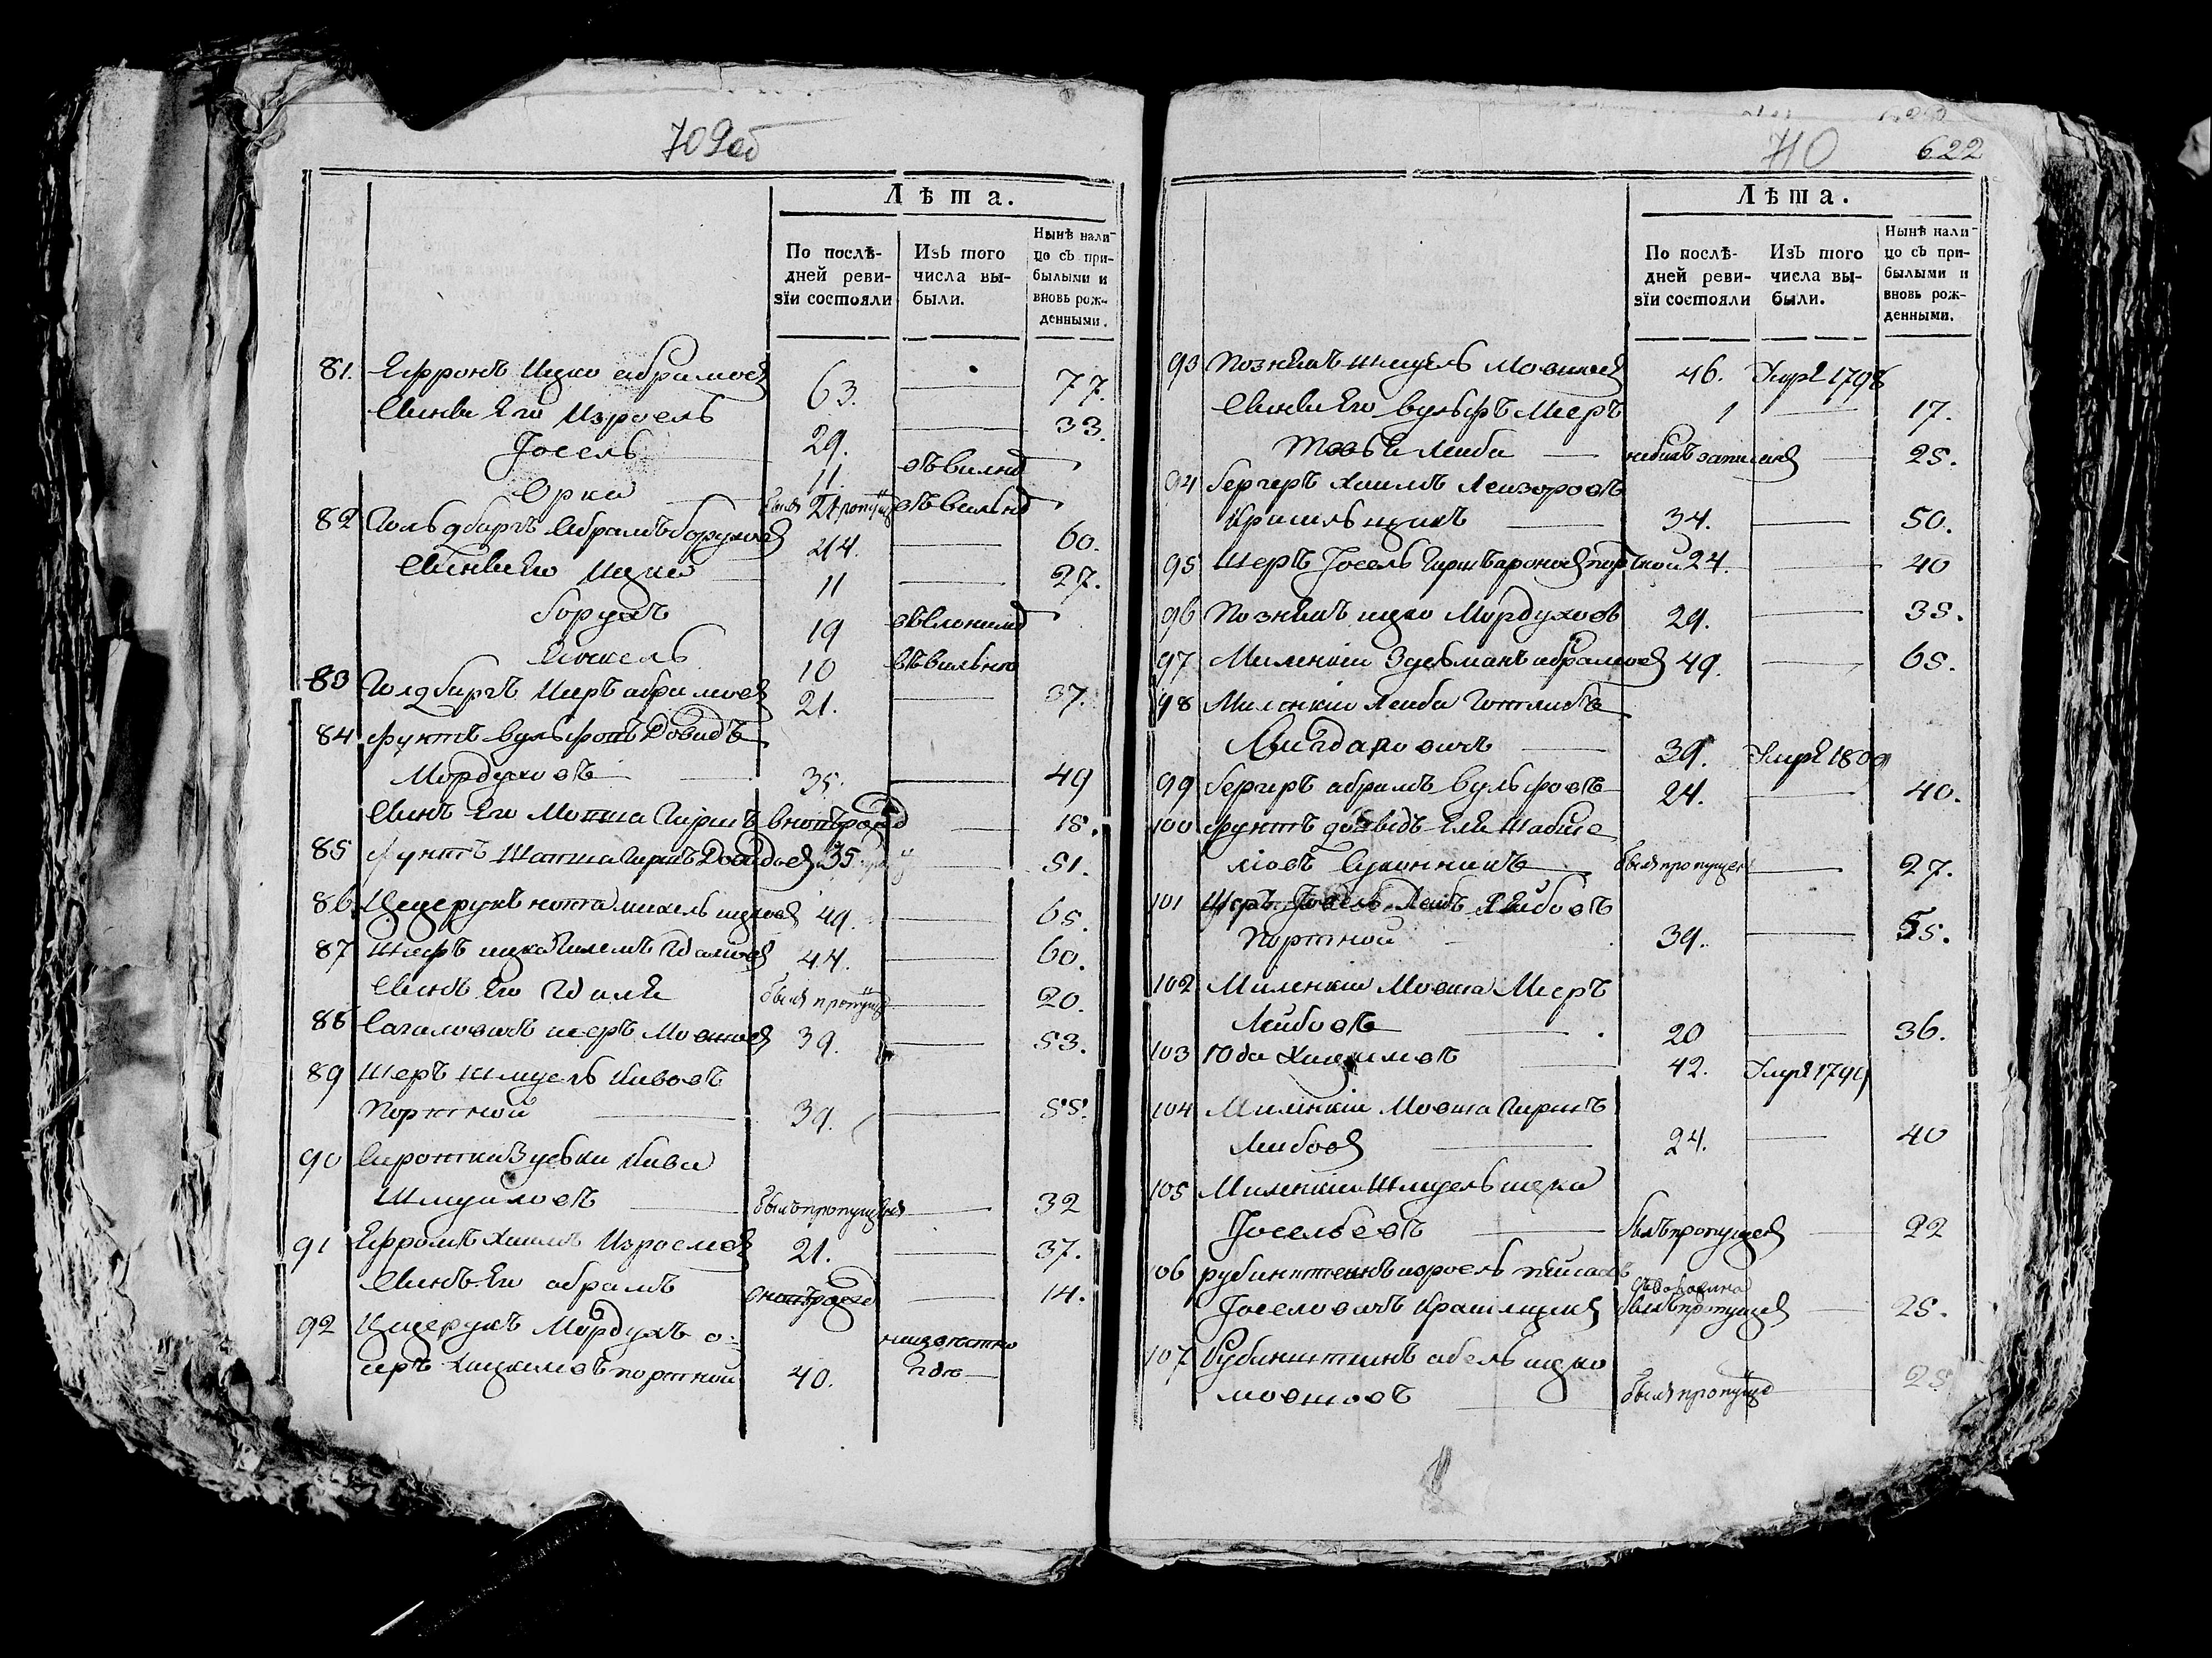 709 об
Лѣта.
По послѣ-
дней реви-
зїи состояли
Изъ того
числа вы-
были.
Нынѣ нали-
цо съ при-
былыми и
вновь рож-
денными.
81. Ефронъ Ицко абрамовъ 63. 77.
Сынъ Его Изроель 29. 33.
Іосель 11. въ вилнѣ
Орка 21 въ вильнѣ
82 Гольдбаргъ Абрамъ боруховъ 44. 60.
Сынъ Его Ицко 11 27.
борухъ 19 въ Слонимѣ
10 въ вильно
83 Голдбаргъ Меръ абрамовъ 21. 37.
84 фунтъ вульфовъ Довидъ
Мордуховъ 35. 49
Сынъ Его Мовша Гиршъ вновъ рожд 15.
85 фунтъ Шапша Гиршъ Довидовъ 35 51.
86 Цецерукъ нота михель ицковъ 49. 65.
87 Шеръ ицко 44. 60.
Сынъ Его былъ пропущ 20.
88 Сагаловичъ меръ Мовшовъ 39. 53.
89 Шеръ Шмуель Кивовъ
Портной 39. 55.
90 Зуська Кива
Шмуиловъ былъ пропущенъ 32
91 Ефронъ Хаимъ Изроелов 21. 37.
Сынъ Его абрамъ вновъ рожд 14.
92 Цецерукъ Мордухъ о-
серъ Хацкелевъ портной 40. неизвестно
где
710
622
Лѣта.
По послѣ-
дней реви-
зїи состояли
Изъ того
числа вы-
были.
Нынѣ нали-
цо съ при-
былыми и
вновь рож-
денными.
93 Познякъ Шмуель Мовшовъ 46. Умре 1798
Сынъ Его вульфъ Меръ 1 17.
Товъе Лейба небылъ записанъ 25.
94 бергеръ Хаимъ Лейзоровъ
Красильщикъ 34. 50.
95 Шеръ Іосель Гиршъ ароновъ портной 24. 40
96 Познякъ ицко Мордуховъ 29. 35.
97 Миленкій Зусьманъ абрамовъ 49. 65.
98 Миленкій Лейба Готлибъ
Авигдаровичъ 39. Умре 1809
99 бергеръ абрамъ вульфовъ 24. 40.
100 фунтъ довидъ Еля Шабше
лiовъ Суконникъ былъ пропущен 27.
101 Шеръ Іосель Лейбъ Лейбовъ
Портной 39. 55.
102 Миленкій Мовша Меръ
Лейбовъ 20 36.
103 Юда Хацкелевъ 42. Умре 1799
104 Миленкій Мовша Гиршъ
Лейбовъ 24. 40
105 Миленкій Шмуель ицка
Іоселевъ былъ пропущен 22
106 рубинштеинъ изроель пейсахъ
Іоселевичъ Красилщикъ былъ пропущен 25.
107 Рубинштеинъ абель ицко
мовшовъ былъ пропущ 25